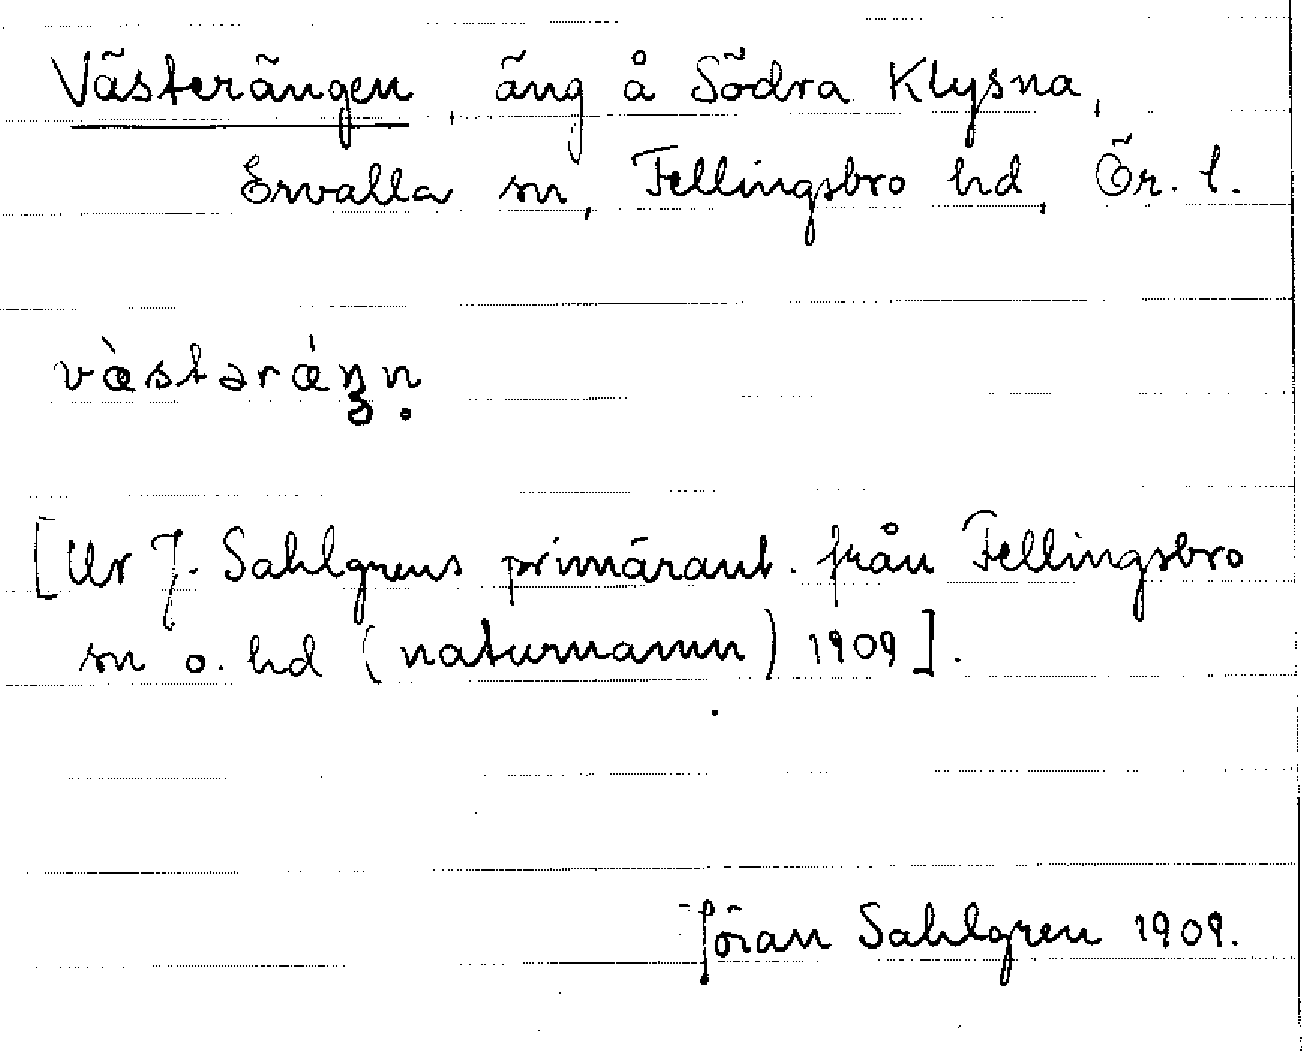 Västerängen, äng å Södra Klysna,
Ervalla sn, Fellingsbro hd, Ör. l.
væ̀stərǽŋ̣n̥
[Ur J. Sahlgrens primärant. från Fellingsbro
sn o. hd (naturnamn) 1909].
Jöran Sahlgren 1909.